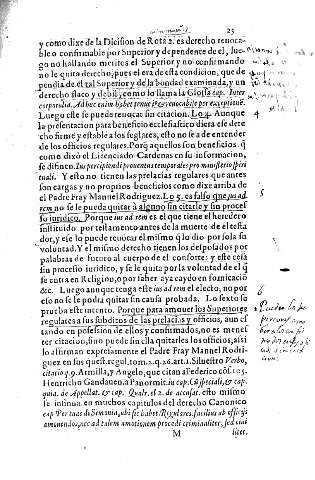 23
y como dixe de la Dicision de Rota 2. es derecho reuoca-
ble o confirmable por Superior y dependente de el, lue-
go no hallando meritos el Superior y no confirmando
no le quita derecho, pues el era de esta condicion, que de
pendia de el tal Superior y de la bondad examinada, y un
derecho flaco y debil, como lo llama la Glossa cap. Inter
corporalia. Ad huc enim habet
Luego este se puede reuocar sin citacion. Lo 4. Aunque
la presentacion para beneficio ecclesiastico diera este dere
cho firme y estable a los seglares, esto no se a de entender
de los officios regulares. Porq̃ aquellos son beneficios q̃
como dixò el Licenciado Cardenas en su informacion,
se difinen: Ius percipiendi prouentus temporales pro ministerio spiri
tuali. Y esto no tienen las prelacias regulares que antes
son cargas y no proprios beneficios como dixe arriba de
el Padre Fray Manuel Rodriguez. Lo 5. es falso que ius ad
rem no se le puede quitar à alguno sin citarle y sin proces
so iuridico. Porque ius ad rem es el que tiene el heredero
instituido por testamento antes de la muerte de el testa
dor, y ese lo puede reuocar el mismo q̃ lo dio por sola su
voluntad. Y el mismo derecho tienen los desposados por
palabras de futuro al cuerpo de el consorte: y este cesa
sin processo iuridico, y se le quita por la voluntad de el q̃
se entra en Religion, o por saber aya caydo en fornicació
&c. Luego aunque tenga este ius ad rem el electo, no por
eso no se le podra quitar sin causa probada. Lo sexto se
prueba este intento. Porque para amouer los Superiores
regulares a sus subditos de las prelacias y officios, aun es
tando en possession de ellos y confirmados, no es menes
ter citacion, sino puede sin ella quitarles los officios, assi
lo afirman expresamente el Padre Fray Manuel Rodri-
guez en sus quest. regul. tom. 2. q. 26. art. 1. Silvestro Verbo,
citatio q. 9. Armilla, y Angelo, que citan a Federico cõs. 105.
Henricho Gandauen. a Panormit. in cap.
quia, de Appellat. & cap. Qualiter. el 2. de accusat. esto mismo
se infinua en muchos capitulos del derecho Canonico
cap Per tuas de Simonia, ubi sic habet. Regulares, facilius ab officijs
amouendos, nec ad talem amotionem procedi criminaliter, sed ciui
M
liter.
4
5
6